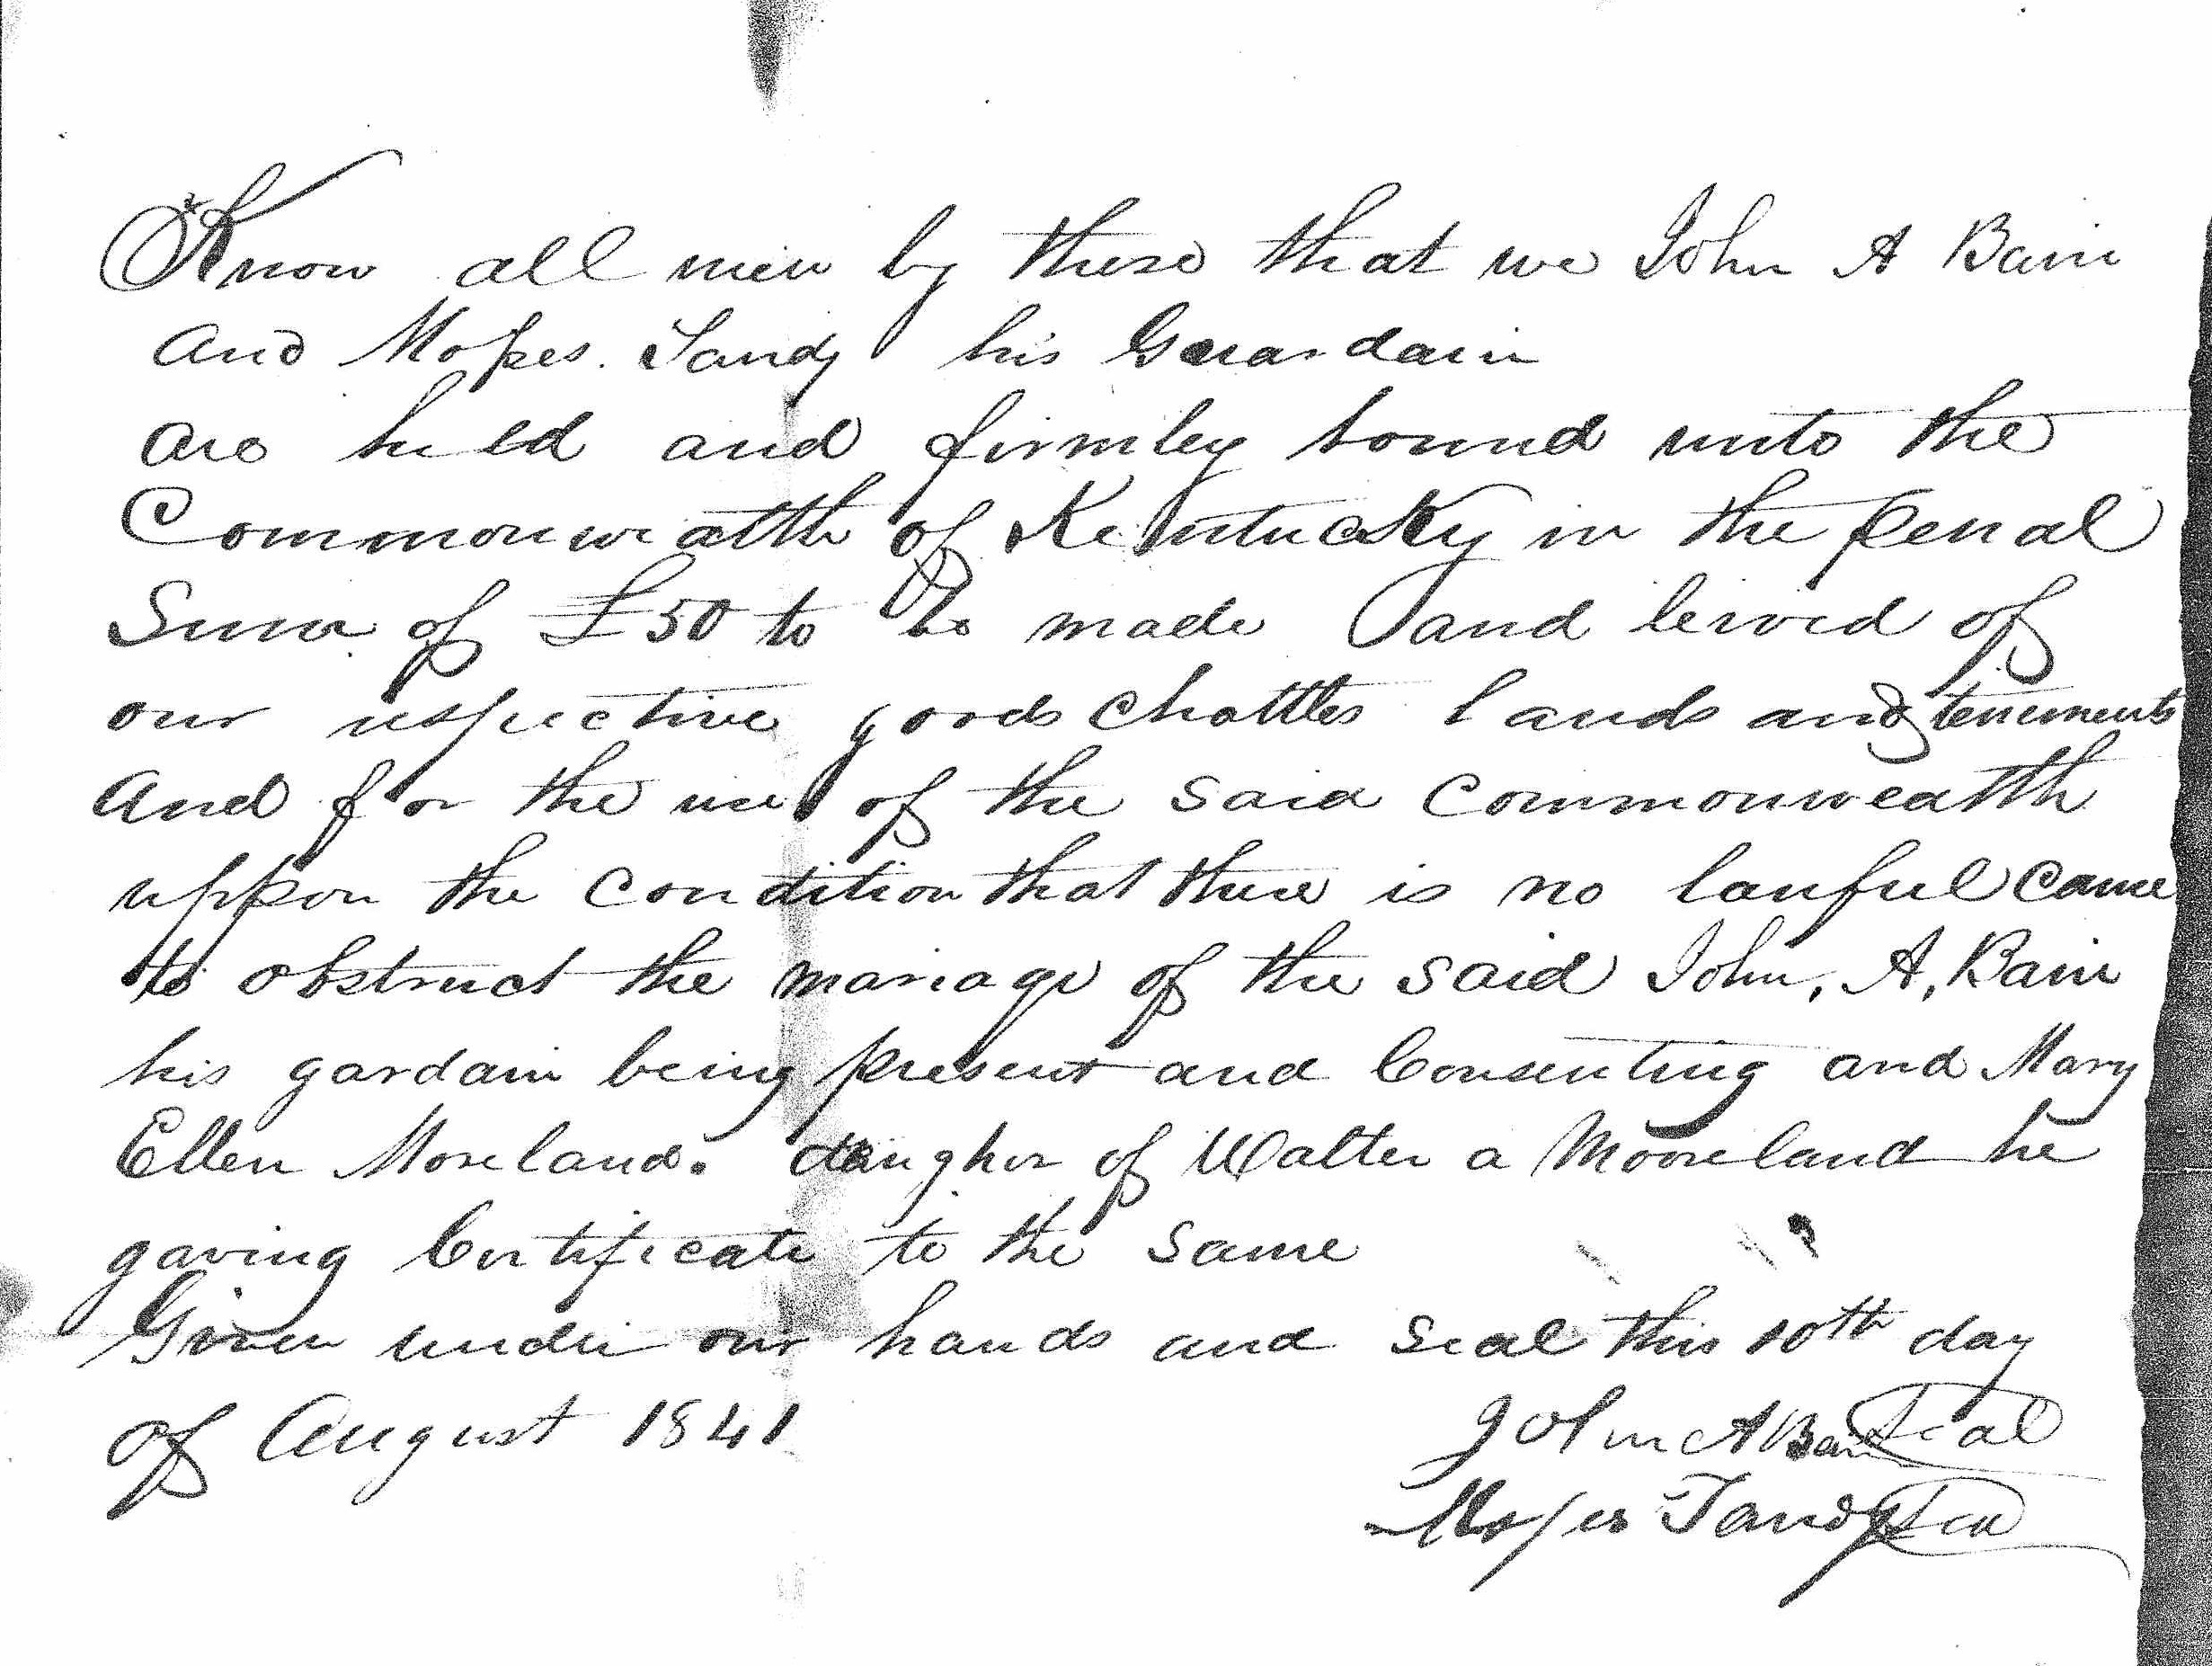 Know all men by these that we John A Bain
and Moses. Tandy his Guardain
are held and firmley bound unto the
Commonweatth of Kentucky in the penal
Sum of £50 to be made and leived of
our respective goods chattles lands and tenements
And for the use of the said commonweatth
uppon the condition that there is no lauful cause
to obstruct the mariage of the said John, A, Bain
his gardain being present and Consenting and Mary
Ellen Moreland. daugher of Walter a Mooreland he
gaving Certificate to the same
Given under our hands and seal this 10th day
of August 1841
John A Bain Seal
Moses Tandy Seal